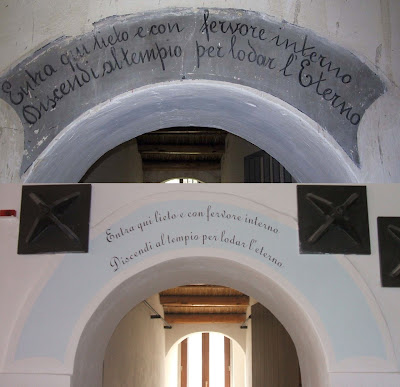 Entra qui lieto e con fervore interno
Discendi al tempio per lodar l'Eterno
Entra qui lieto e con fervore interno
Discendi al tempio per lodar l'eterno